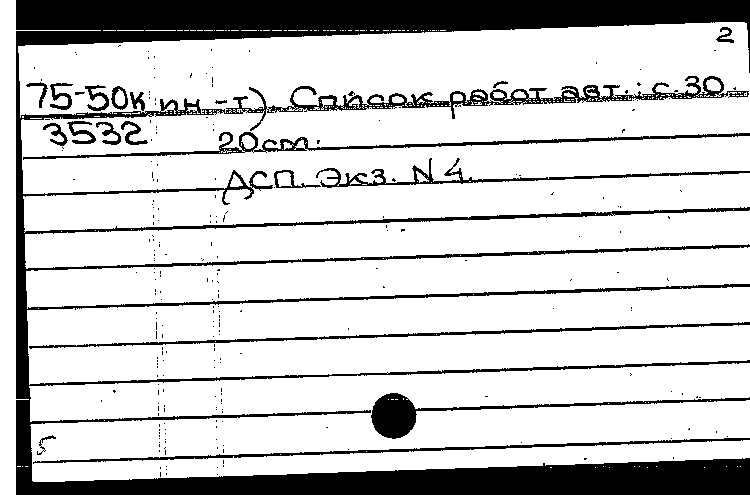 2
75-50к ин-т). Список работ авт.: с.30.
3532 20см.
ДСП. Экз. N 4.
5